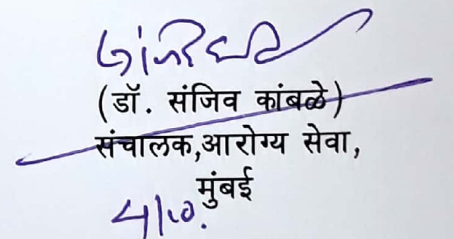 (डॉ. संजिव कांबळे)
संचालक,आरोग्य सेवा,
मुंबई
4/10.